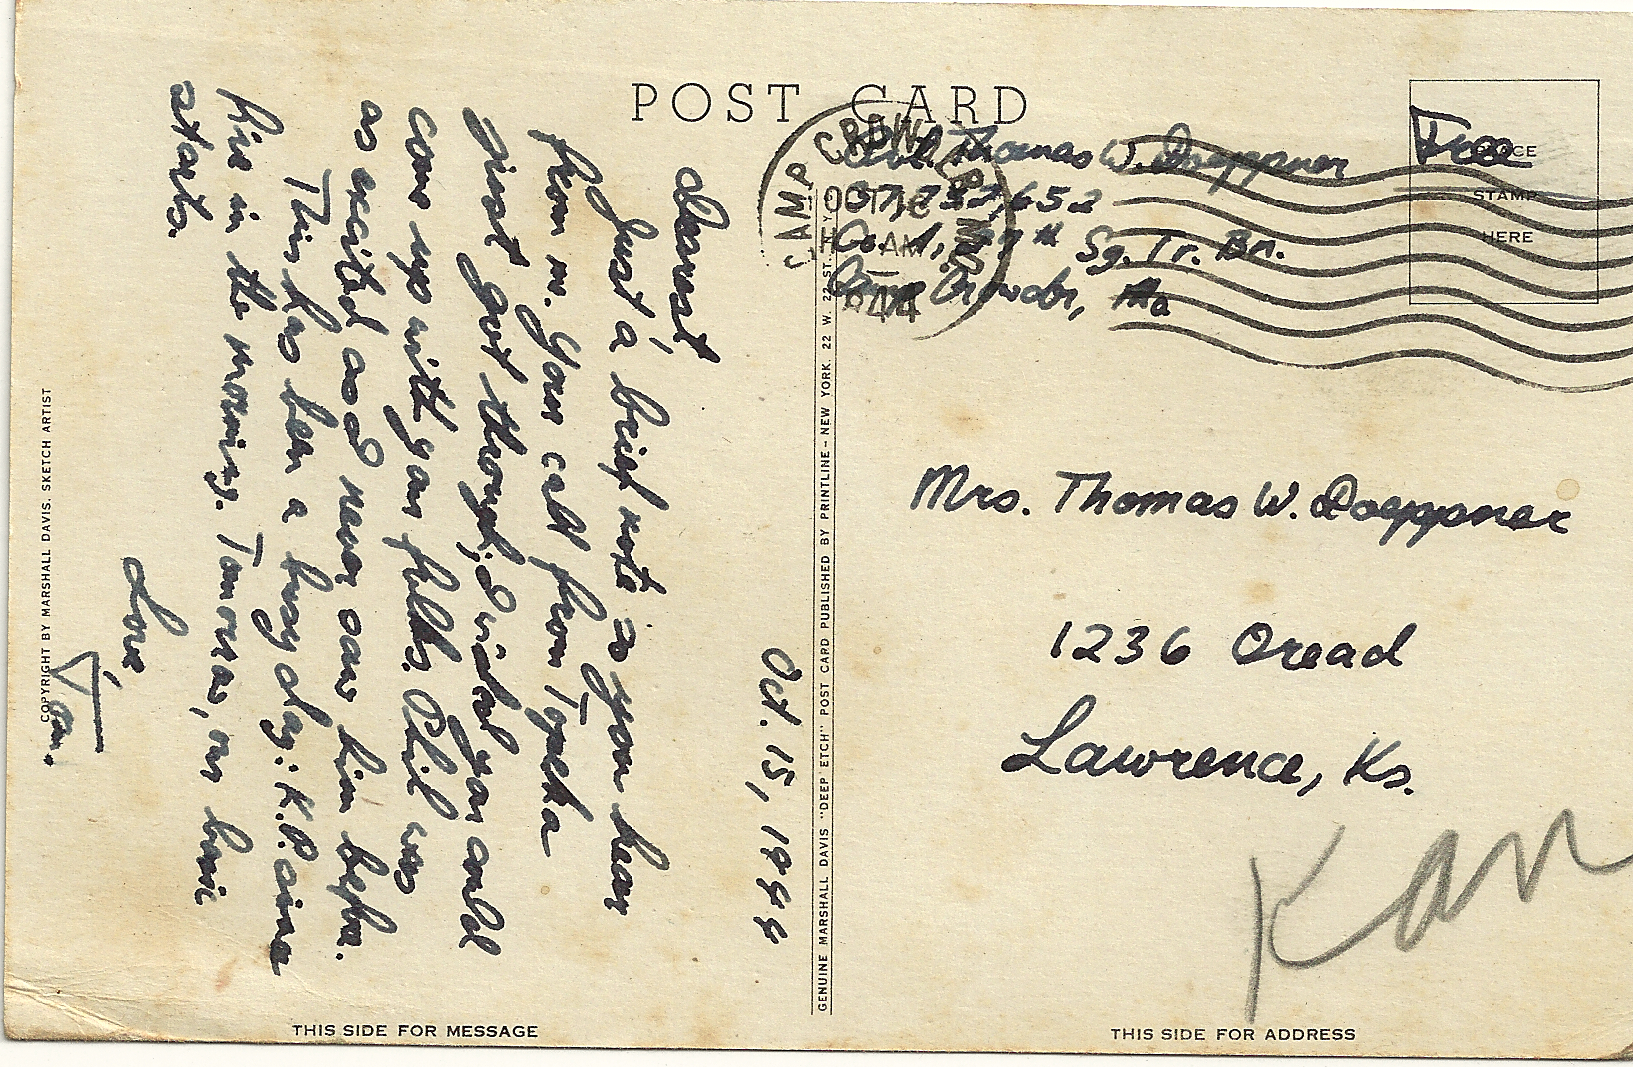 POST CARD
Oct. 15, 1944
Dearest,
Just a brief note so you hear
from me. Your call from Topeka
just got through; I wish you could
come up with your folks. Phil was
as excited as I never saw him before.
This has been a busy day: K.P. since
five in the morning. Tomorrow, our basic
starts.
Love,
Tom.
COPYRIGHT BY MARSHALL DAVIS. SKETCH ARTIST
THIS SIDE FOR MESSAGE
GENUINE MARSHALL DAVIS "DEEP ETCH" POST CARD PUBLISHED BY PRINTLINE - NEW YORK 22 W. ST.
Thomas W. Doeppner
Sg. Tr. Bn.
Camp Crowder, Mo
CAMP CROWDER
OCT 16
AM
Free
PLACE
STAMP
HERE
Mrs. Thomas W. Doeppner
1236 Oread
Lawrence, Ks.
Kan
THIS SIDE FOR ADDRESS